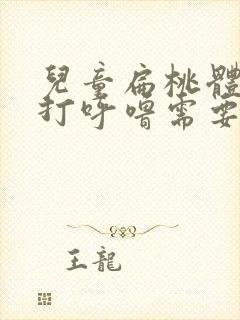 兒童扁桃體
打呼嚕需要
王龍